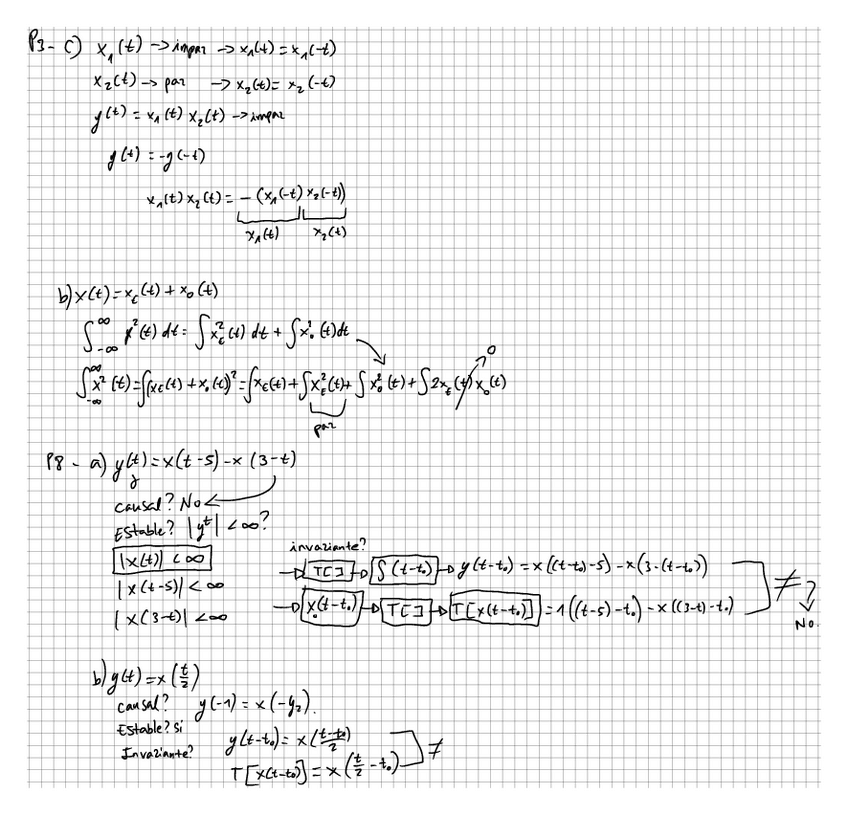 P3- c) x₁(t) → impar → x₁(t) = x₁(-t)
x₂(t) → par → x₂(t) = x₂(-t)
y(t) = x₁(t) x₂(t) → impar
y(t) = -y(-t)
x₁(t) x₂(t) = -(x₁(-t) x₂(-t))
x₁(t) x₂(t)
b) x(t) = x_ε(t) + x₀(t)
∫_{-∞}^{∞} x²(t) dt = ∫ x_ε²(t) dt + ∫ x₀²(t) dt
∫_{-∞}^{∞} x²(t) = ∫ (x_ε(t) + x₀(t))² = ∫ x_ε(t) + ∫ x_ε²(t) + ∫ x₀²(t) + ∫ 2x_ε(t) x₀(t) 0
par
P8 - a) y(t) = x(t-5) - x(3-t)
causal? No
Estable? |yᵗ| < ∞?
|x(t)| < ∞
|x(t-5)| < ∞
|x(3-t)| < ∞
invariante?
→ T[ ] → ∫(t-t₀) → y(t-t₀) = x((t-t₀)-5) - x(3-(t-t₀))
→ x(t-t₀) → T[ ] → T[x(t-t₀)] = 1((t-5)-t₀) - x((3-t)-t₀)
≠ ?
No.
b) y(t) = x(t/2)
causal? y(-1) = x(-1/2).
Estable? Si
Invariante? y(t-t₀) = x((t-t₀)/2)
T[x(t-t₀)] = x(t/2 - t₀) ≠